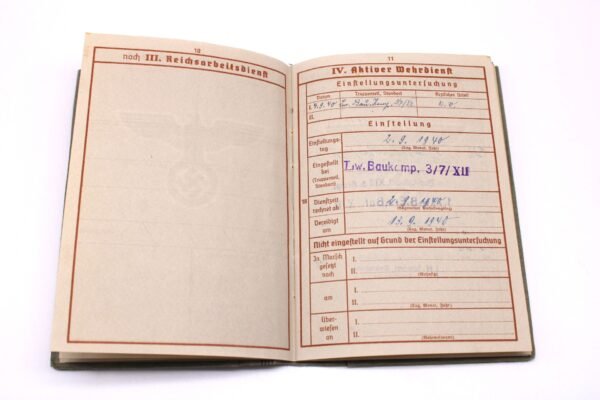 10
noch III. Reichsarbeitsdienst
11
IV. Aktiver Wehrdienst
Einstellungsuntersuchung
Datum
Truppenteil, Standort
I.
II.
Einstellung
Einstellungs-
tag
2. 9. 1940
(Tag, Monat, Jahr)
Eingestellt
bei
(Truppenteil,
Standort)
Lw. Baukomp. 3/7/XII
18
Dienstzeit
rechnet ab
2. 9. 1940
Vereidigt
am
13. 9. 1940
(Tag, Monat, Jahr)
Nicht eingestellt auf Grund der Einstellungsuntersuchung
In Marsch
gesetzt
nach
I.
II.
am
I.
II.
(Tag, Monat, Jahr)
Über-
wiesen
an
I.
II.